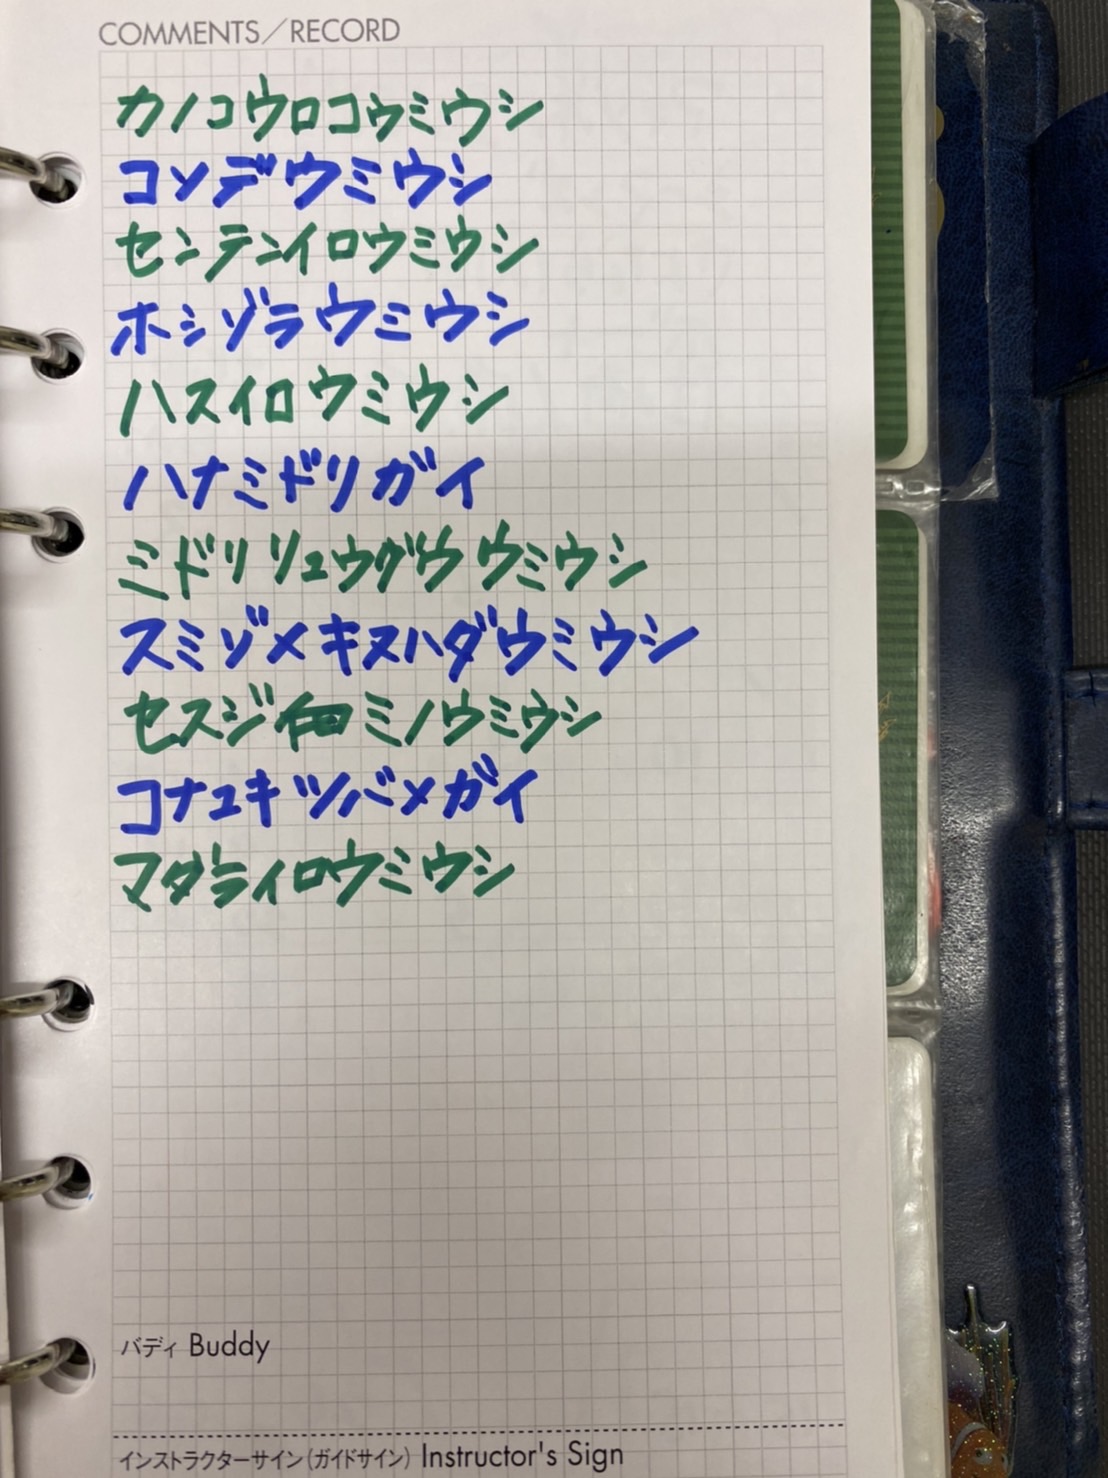 COMMENTS／RECORD
カノコウロコウミウシ
コンデウミウシ
センテンイロウミウシ
ホシゾラウミウシ
ハスイロウミウシ
ハナミドリガイ
ミドリリュウグウウミウシ
スミゾメキヌハダウミウシ
セスジイロミノウミウシ
コナユキツバメガイ
マダライロウミウシ
バディ Buddy
インストラクターサイン(ガイドサイン) Instructor's Sign